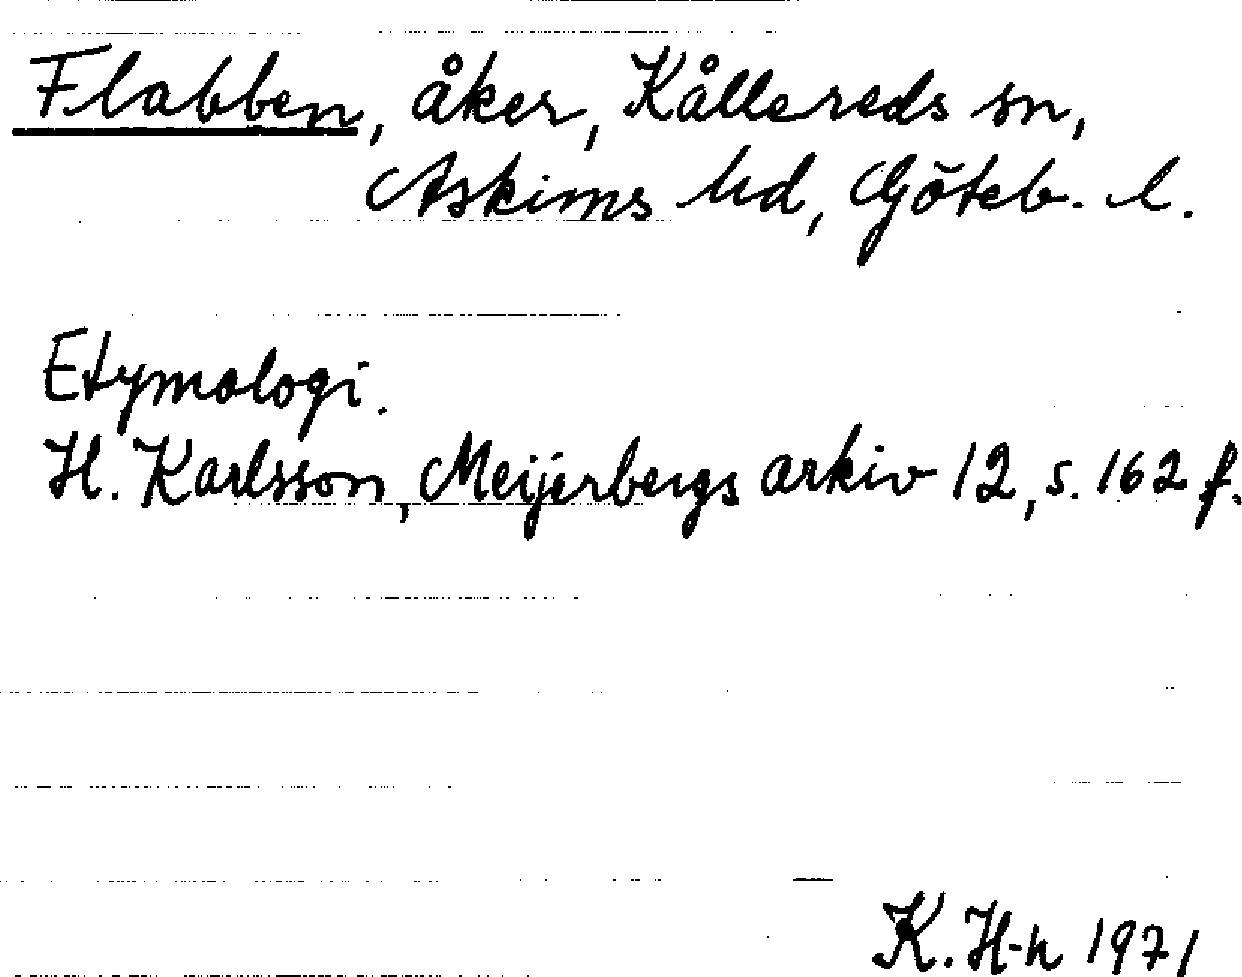 Flabben, åker, Kållereds sn,
Askims hd, Göteb. l.
Etymologi.
H. Karlsson, Meijerbergs arkiv 12, s. 162 f.
K. H-n 1971